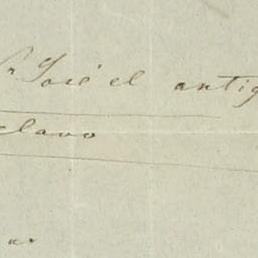 Sr José el antig
clavo